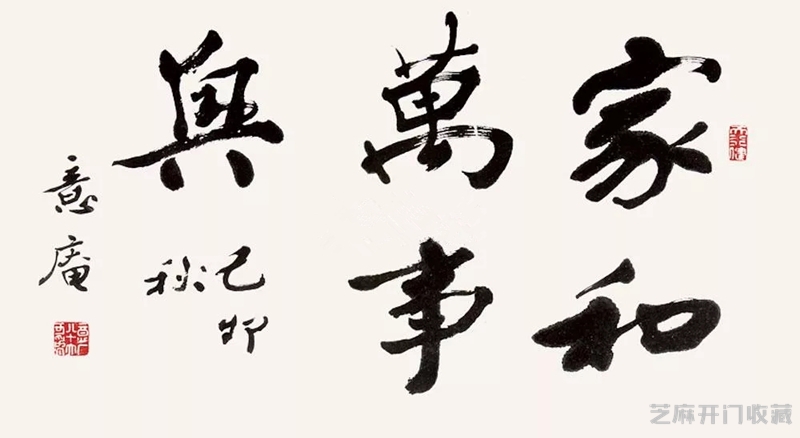 家和
萬事
興
己卯
秋
意庵
芝麻开门收藏